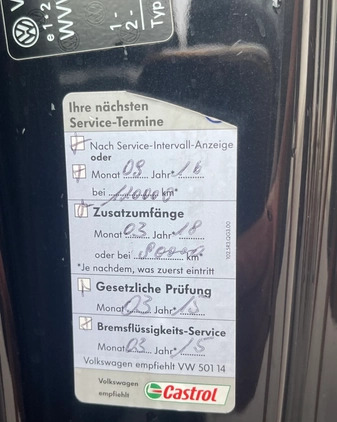 e 1*2
1-
2-
Typ
Ihre nächsten
Service-Termine
Nach Service-Intervall-Anzeige
oder
Monat 09 Jahr* 16
bei 110000 km*
Zusatzumfänge
Monat 03 Jahr 18
oder bei 80000 km*
*Je nachdem, was zuerst eintritt
Gesetzliche Prüfung
Monat 03 Jahr 15
Bremsflüssigkeits-Service
Monat 03 Jahr* 15
Volkswagen empfiehlt VW 501 14
Volkswagen
empfiehlt
Castrol